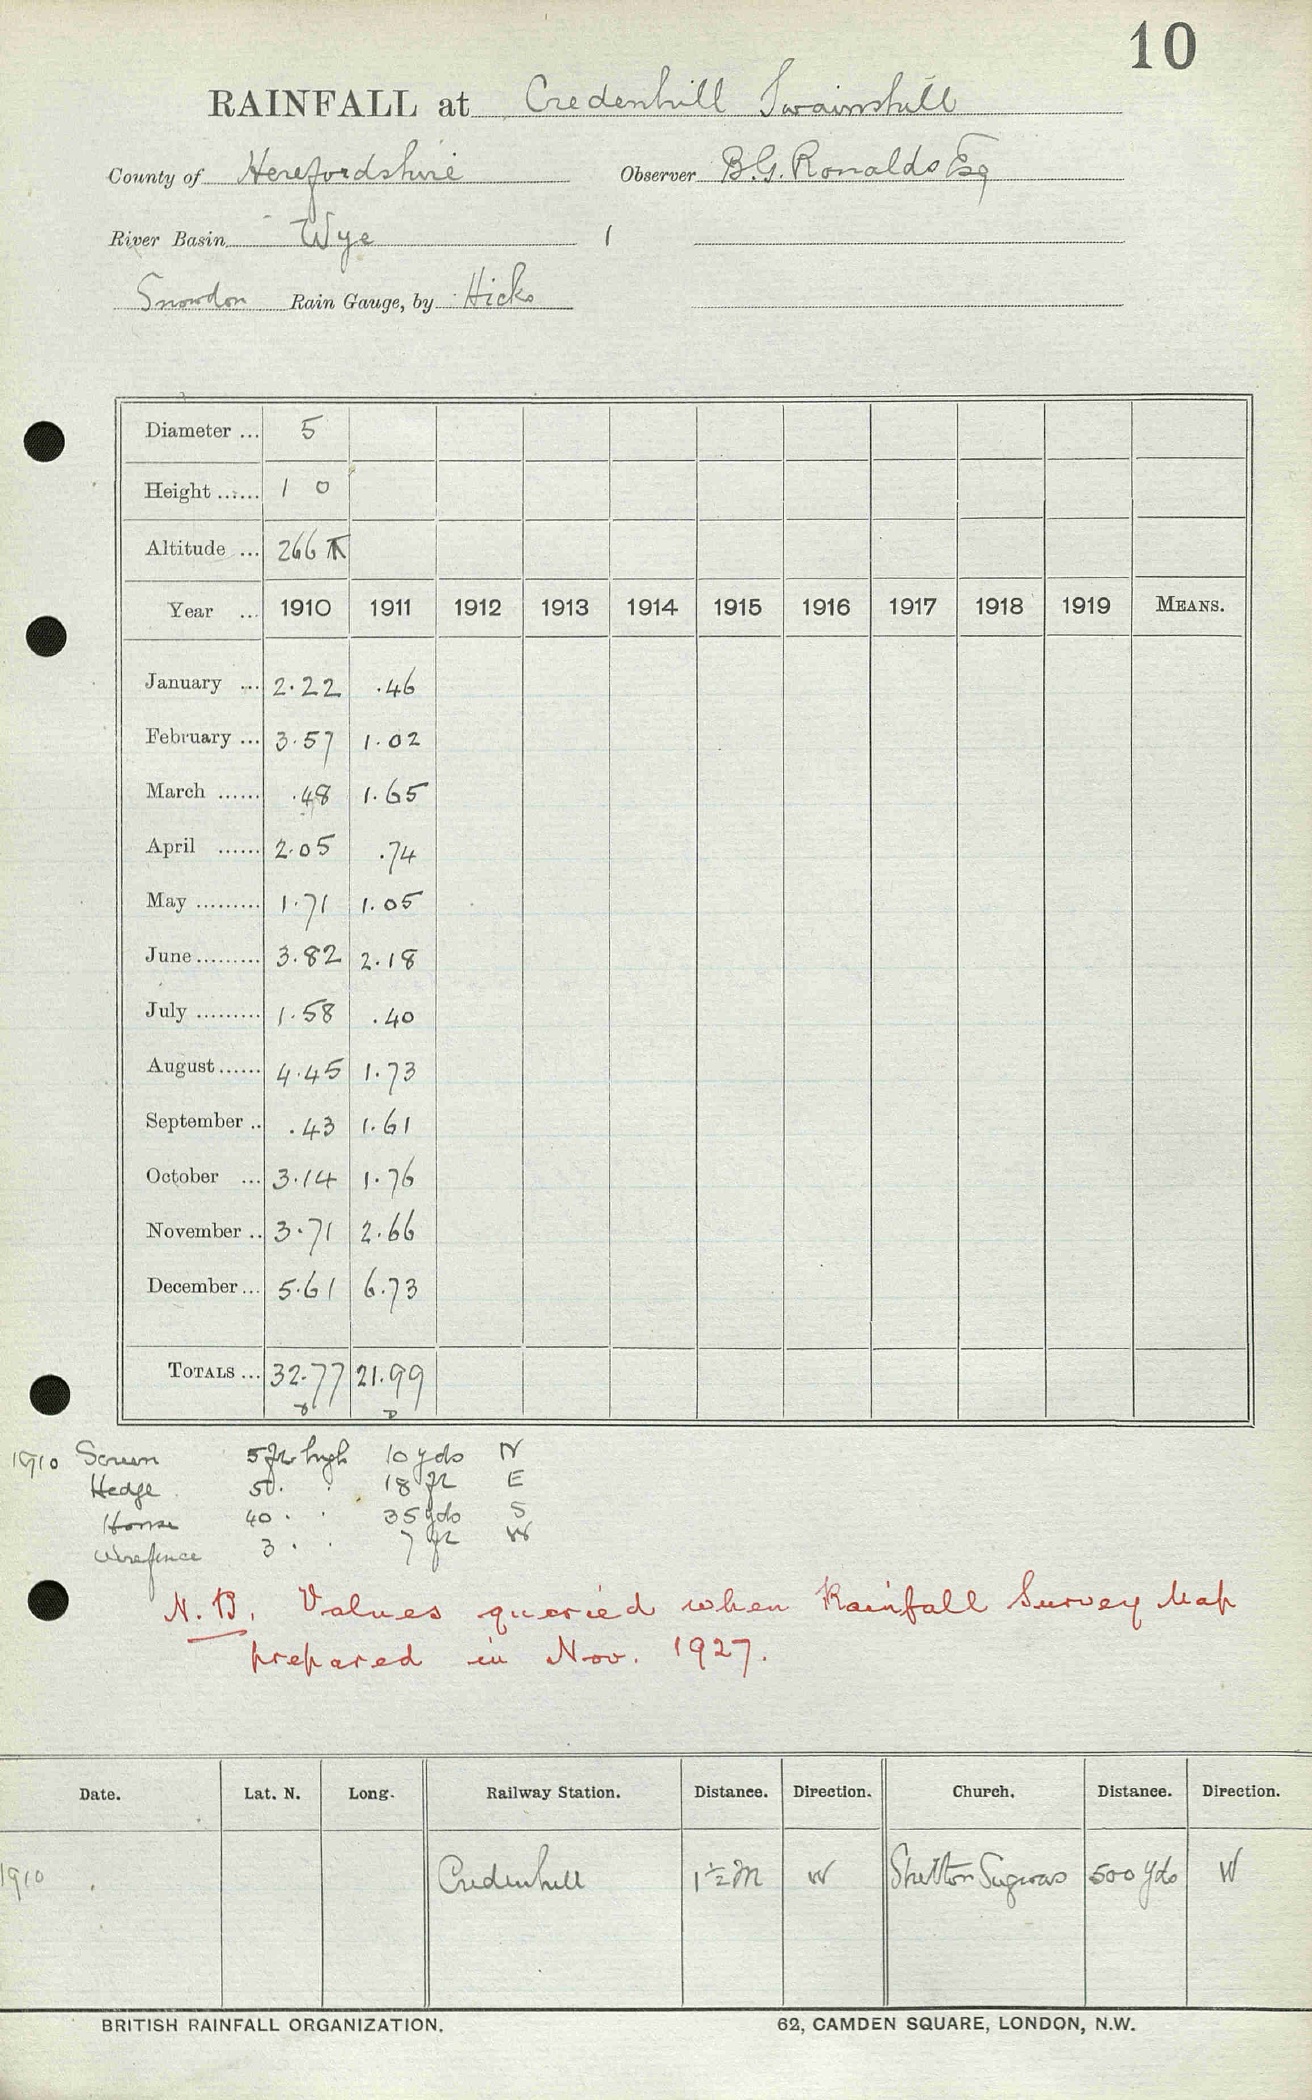 10
RAINFALL at Credenhill Swainshill
County of Herefordshire Observer B.G. Ronalds Esq
River Basin Wye 1
Snowdon Rain Gauge, by Hicks
Diameter ... 5
Height ...... 1 0
Altitude ... 266
Year ... 1910 1911 1912 1913 1914 1915 1916 1917 1918 1919 MEANS.
January ... 2.22 .46
February ... 3.57 1.02
March ...... .48 1.65
April ...... 2.05 .74
May ......... 1.71 1.05
June ......... 3.82 2.18
July ......... 1.58 .40
August ...... 4.45 1.73
September .. .43 1.61
October ... 3.14 1.76
November .. 3.71 2.66
December ... 5.61 6.73
TOTALS ... 32.77 21.99
1910 Screen 5 ft high 10 yds N
Hedge 5 18 ft E
House 40 35 yds S
Wire fence 3 7 ft W
N.B. Values queried when Rainfall Survey Map
prepared in Nov. 1927.
Date. Lat. N. Long. Railway Station. Distance. Direction. Church. Distance. Direction.
1910 Credenhill 1½ M W Stretton Sugwas 500 yds W
BRITISH RAINFALL ORGANIZATION. 62, CAMDEN SQUARE, LONDON, N.W.